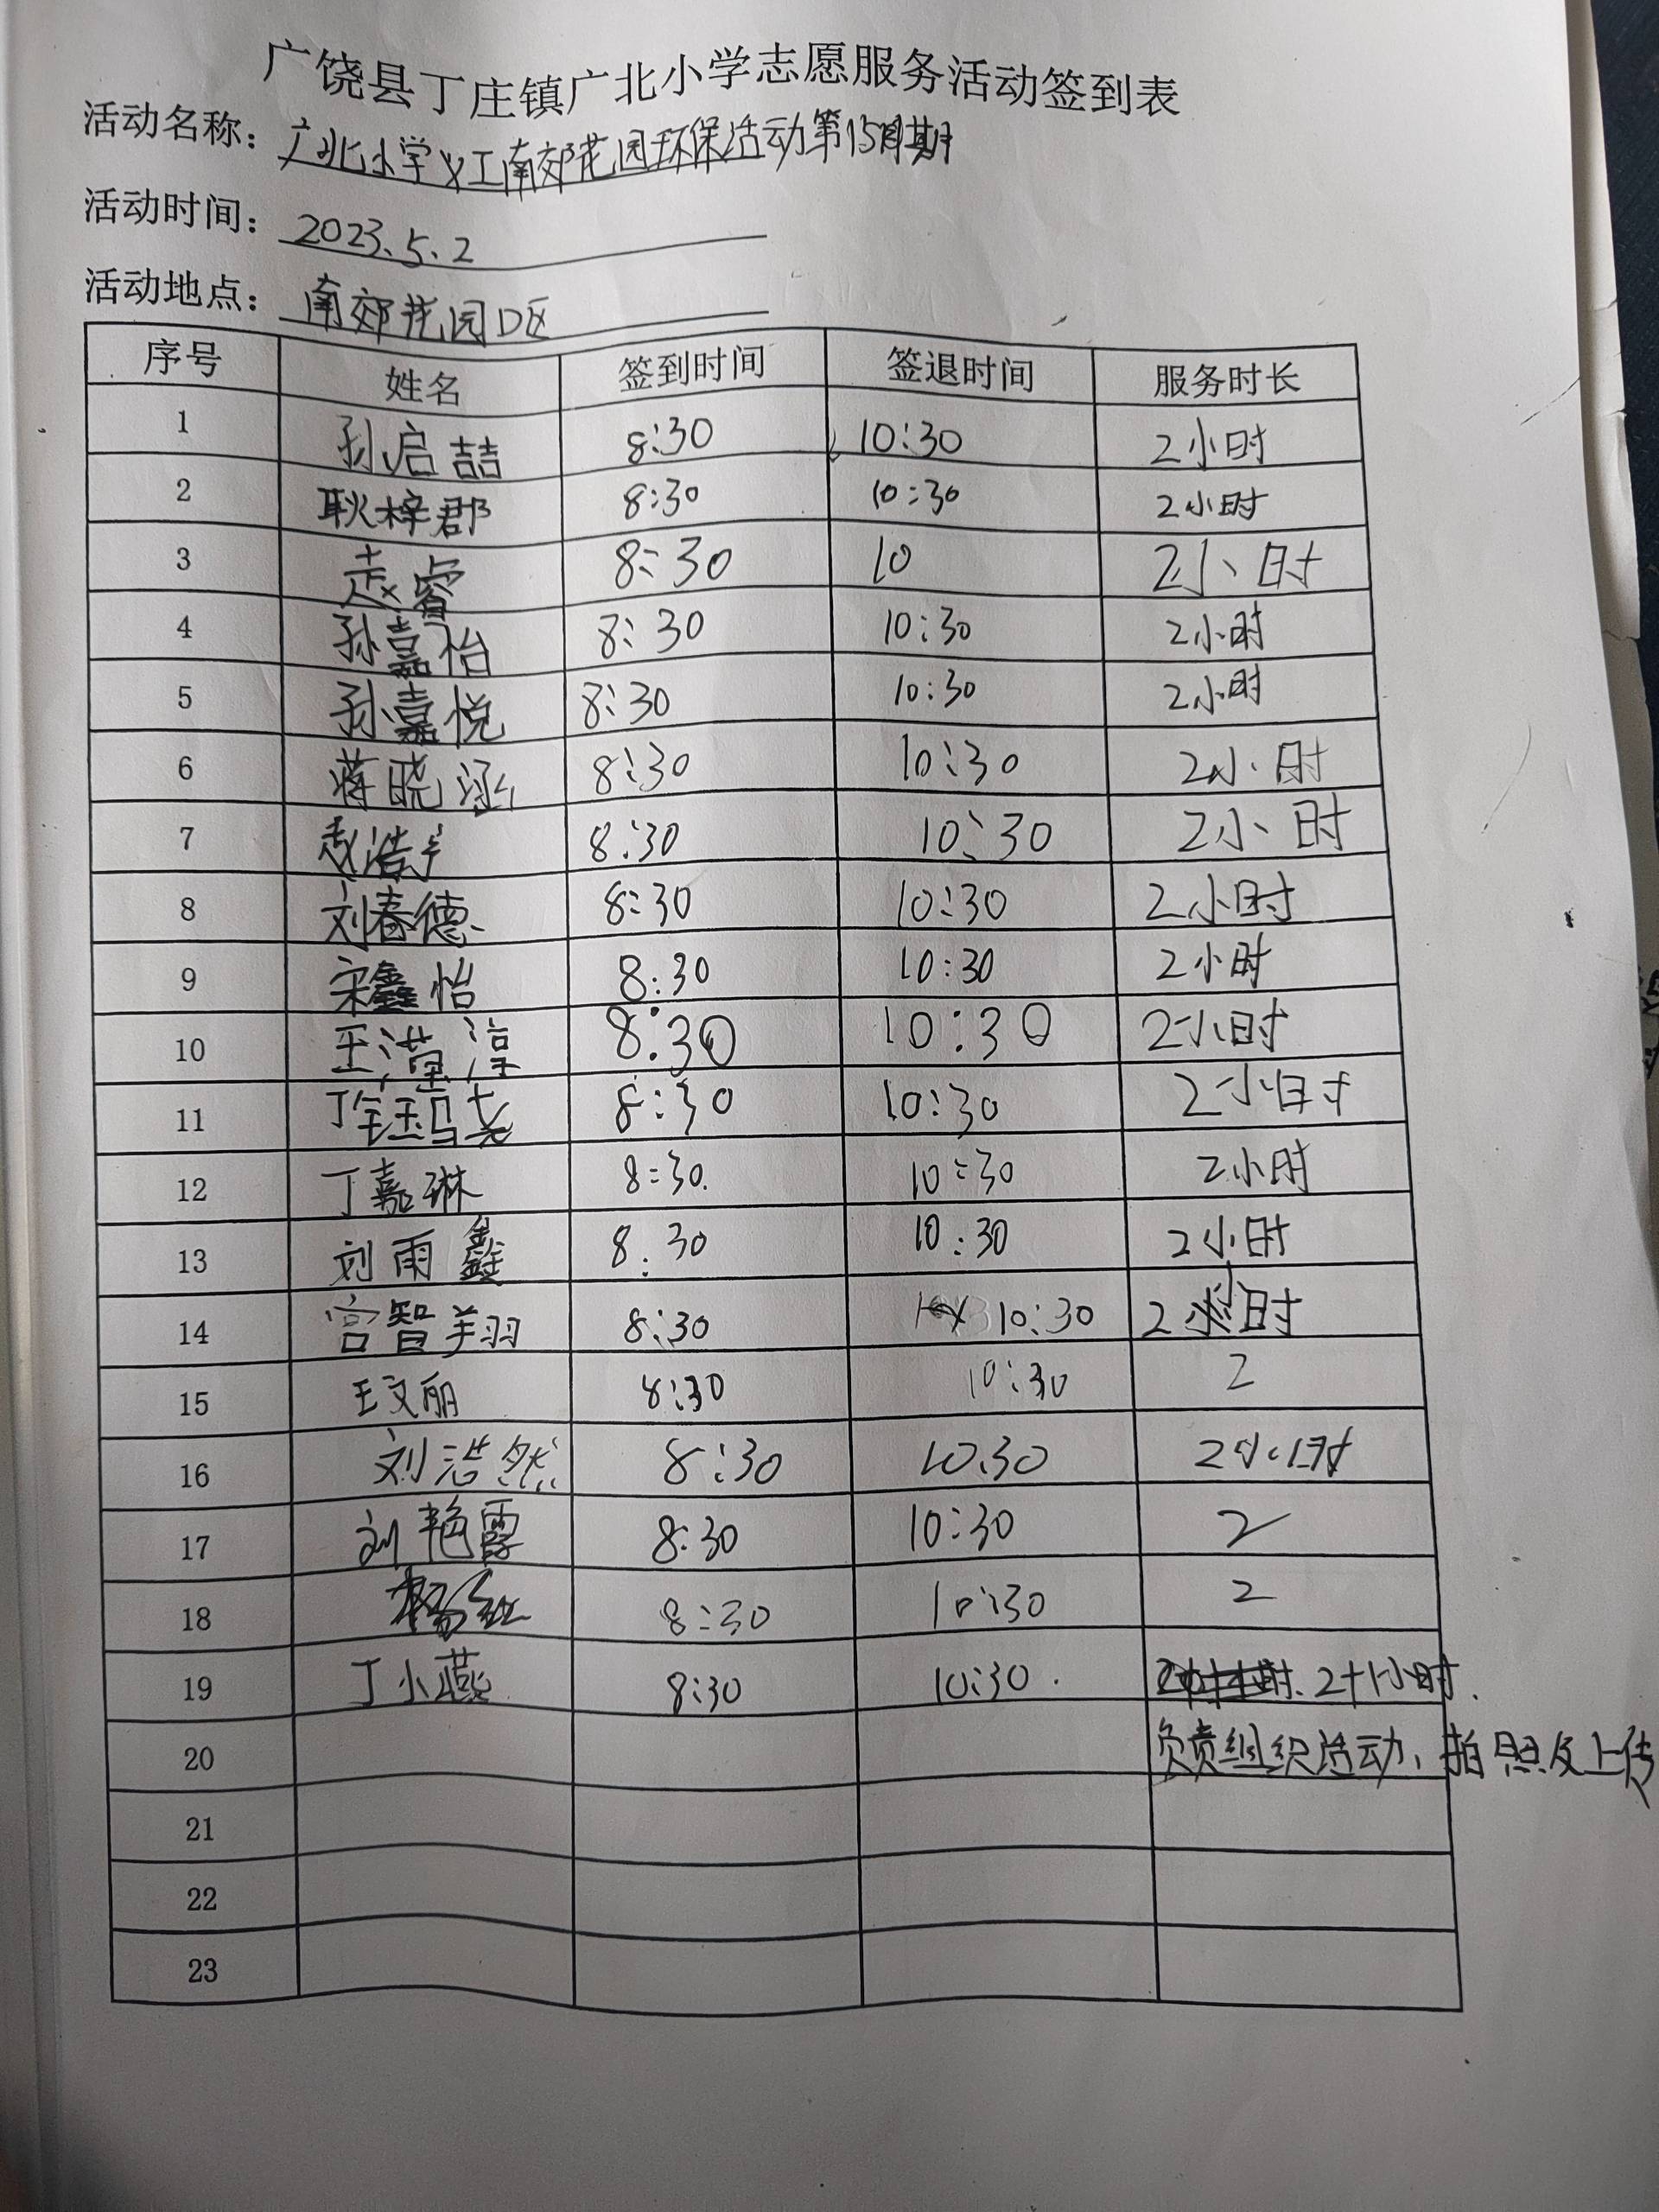 广饶县丁庄镇广北小学志愿服务活动签到表
活动名称：广北小学义工南郊花园环保活动第15期
活动时间：2023.5.2
活动地点：南郊花园D区
序号 姓名 签到时间 签退时间 服务时长
1 孙启喆 8:30 10:30 2小时
2 耿梓郡 8:30 10:30 2小时
3 赵睿 8:30 10 2小时
4 孙嘉怡 8:30 10:30 2小时
5 孙嘉悦 8:30 10:30 2小时
6 蒋晓涵 8:30 10:30 2小时
7 赵浩宇 8:30 10:30 2小时
8 刘春德 8:30 10:30 2小时
9 宋鑫怡 8:30 10:30 2小时
10 王滢淳 8:30 10:30 2小时
11 丁 8:30 10:30 2小时
12 丁嘉琳 8:30. 10:30 2小时
13 刘雨鑫 8:30 10:30 2小时
14 宫智翔 8:30 10:30 2小时
15 王文丽 8:30 10:30 2
16 刘浩然 8:30 10:30 2小时
17 刘艳霞 8:30 10:30 2
18 杨红 8:30 10:30 2
19 丁小燕 8:30 10:30. 2+1小时.
20 负责组织活动，拍照及上传
21
22
23